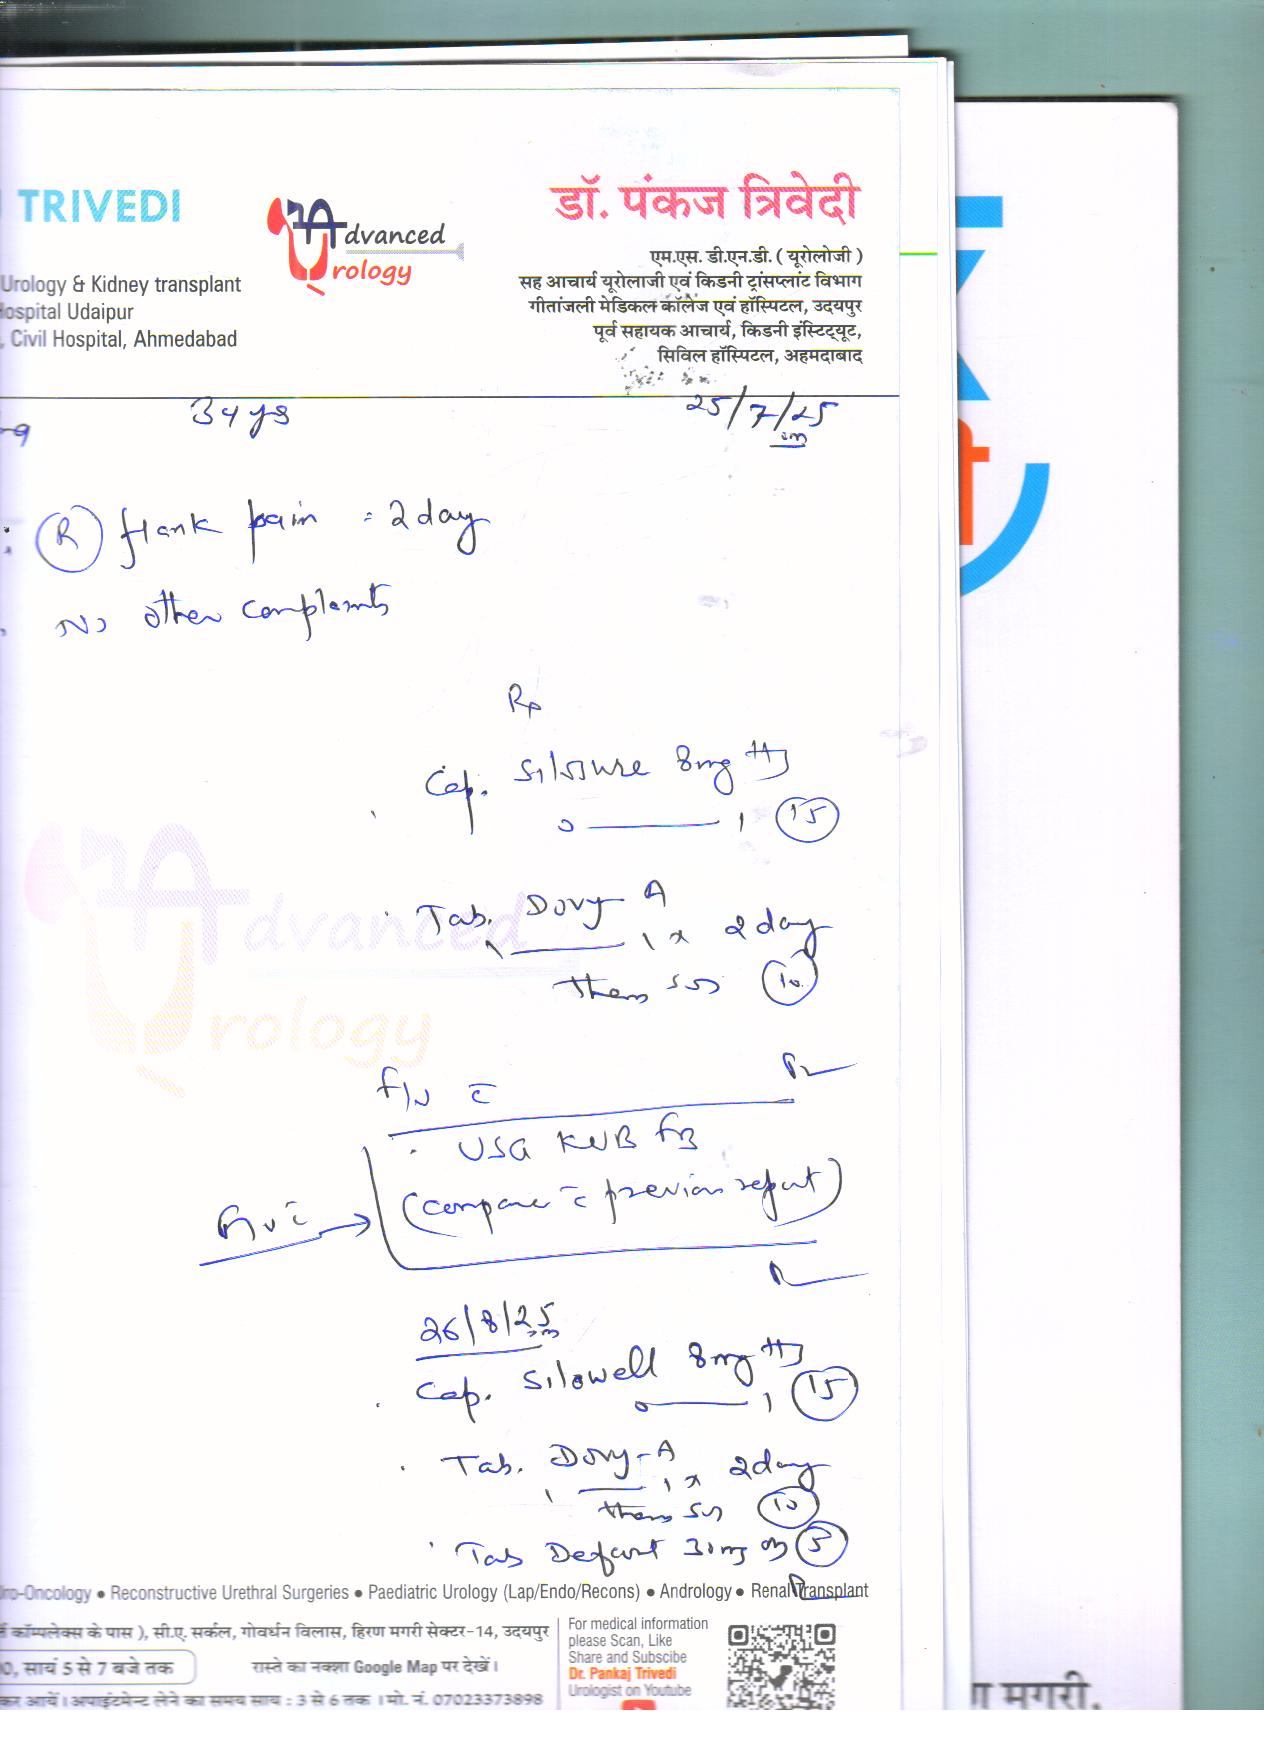 TRIVEDI
Advanced
Urology
डॉ. पंकज त्रिवेदी
एम.एस. डी.एन.डी. ( यूरोलोजी )
Urology & Kidney transplant
सह आचार्य यूरोलाजी एवं किडनी ट्रांसप्लांट विभाग
Hospital Udaipur
गीतांजली मेडिकल कॉलेज एवं हॉस्पिटल, उदयपुर
, Civil Hospital, Ahmedabad
पूर्व सहायक आचार्य, किडनी इंस्टिट्यूट,
सिविल हॉस्पिटल, अहमदाबाद
34 yrs
25/7/25
R flank pain = 2 day
No other complaints
Rx
Cap. Silosure 8mg HS
0 — 1 15
Tab. Dovy-A
1 — 1 x 2 day
then sos 10
USG KUB
(compare c̄ previous report)
26/8/25
Cap. Silowell 8mg HS
0 — 1 15
Tab. Dovy-A
1 — 1 x 2 day
then sos 10
Tab 30 mg 5
Advanced
Urology
ro-Oncology • Reconstructive Urethral Surgeries • Paediatric Urology (Lap/Endo/Recons) • Andrology • Renal Transplant
कॉम्पलेक्स के पास ), सी.ए. सर्कल, गोवर्धन विलास, हिरण मगरी सेक्टर-14, उदयपुर
0, सायं 5 से 7 बजे तक
रास्ते का नक्शा Google Map पर देखें।
कर आयें। अपाइंटमेन्ट लेने का समय साय : 3 से 6 तक । मो. नं. 07023373898
For medical information
please Scan, Like
Share and Subscibe
Dr. Pankaj Trivedi
Urologist on Youtube
मगरी,